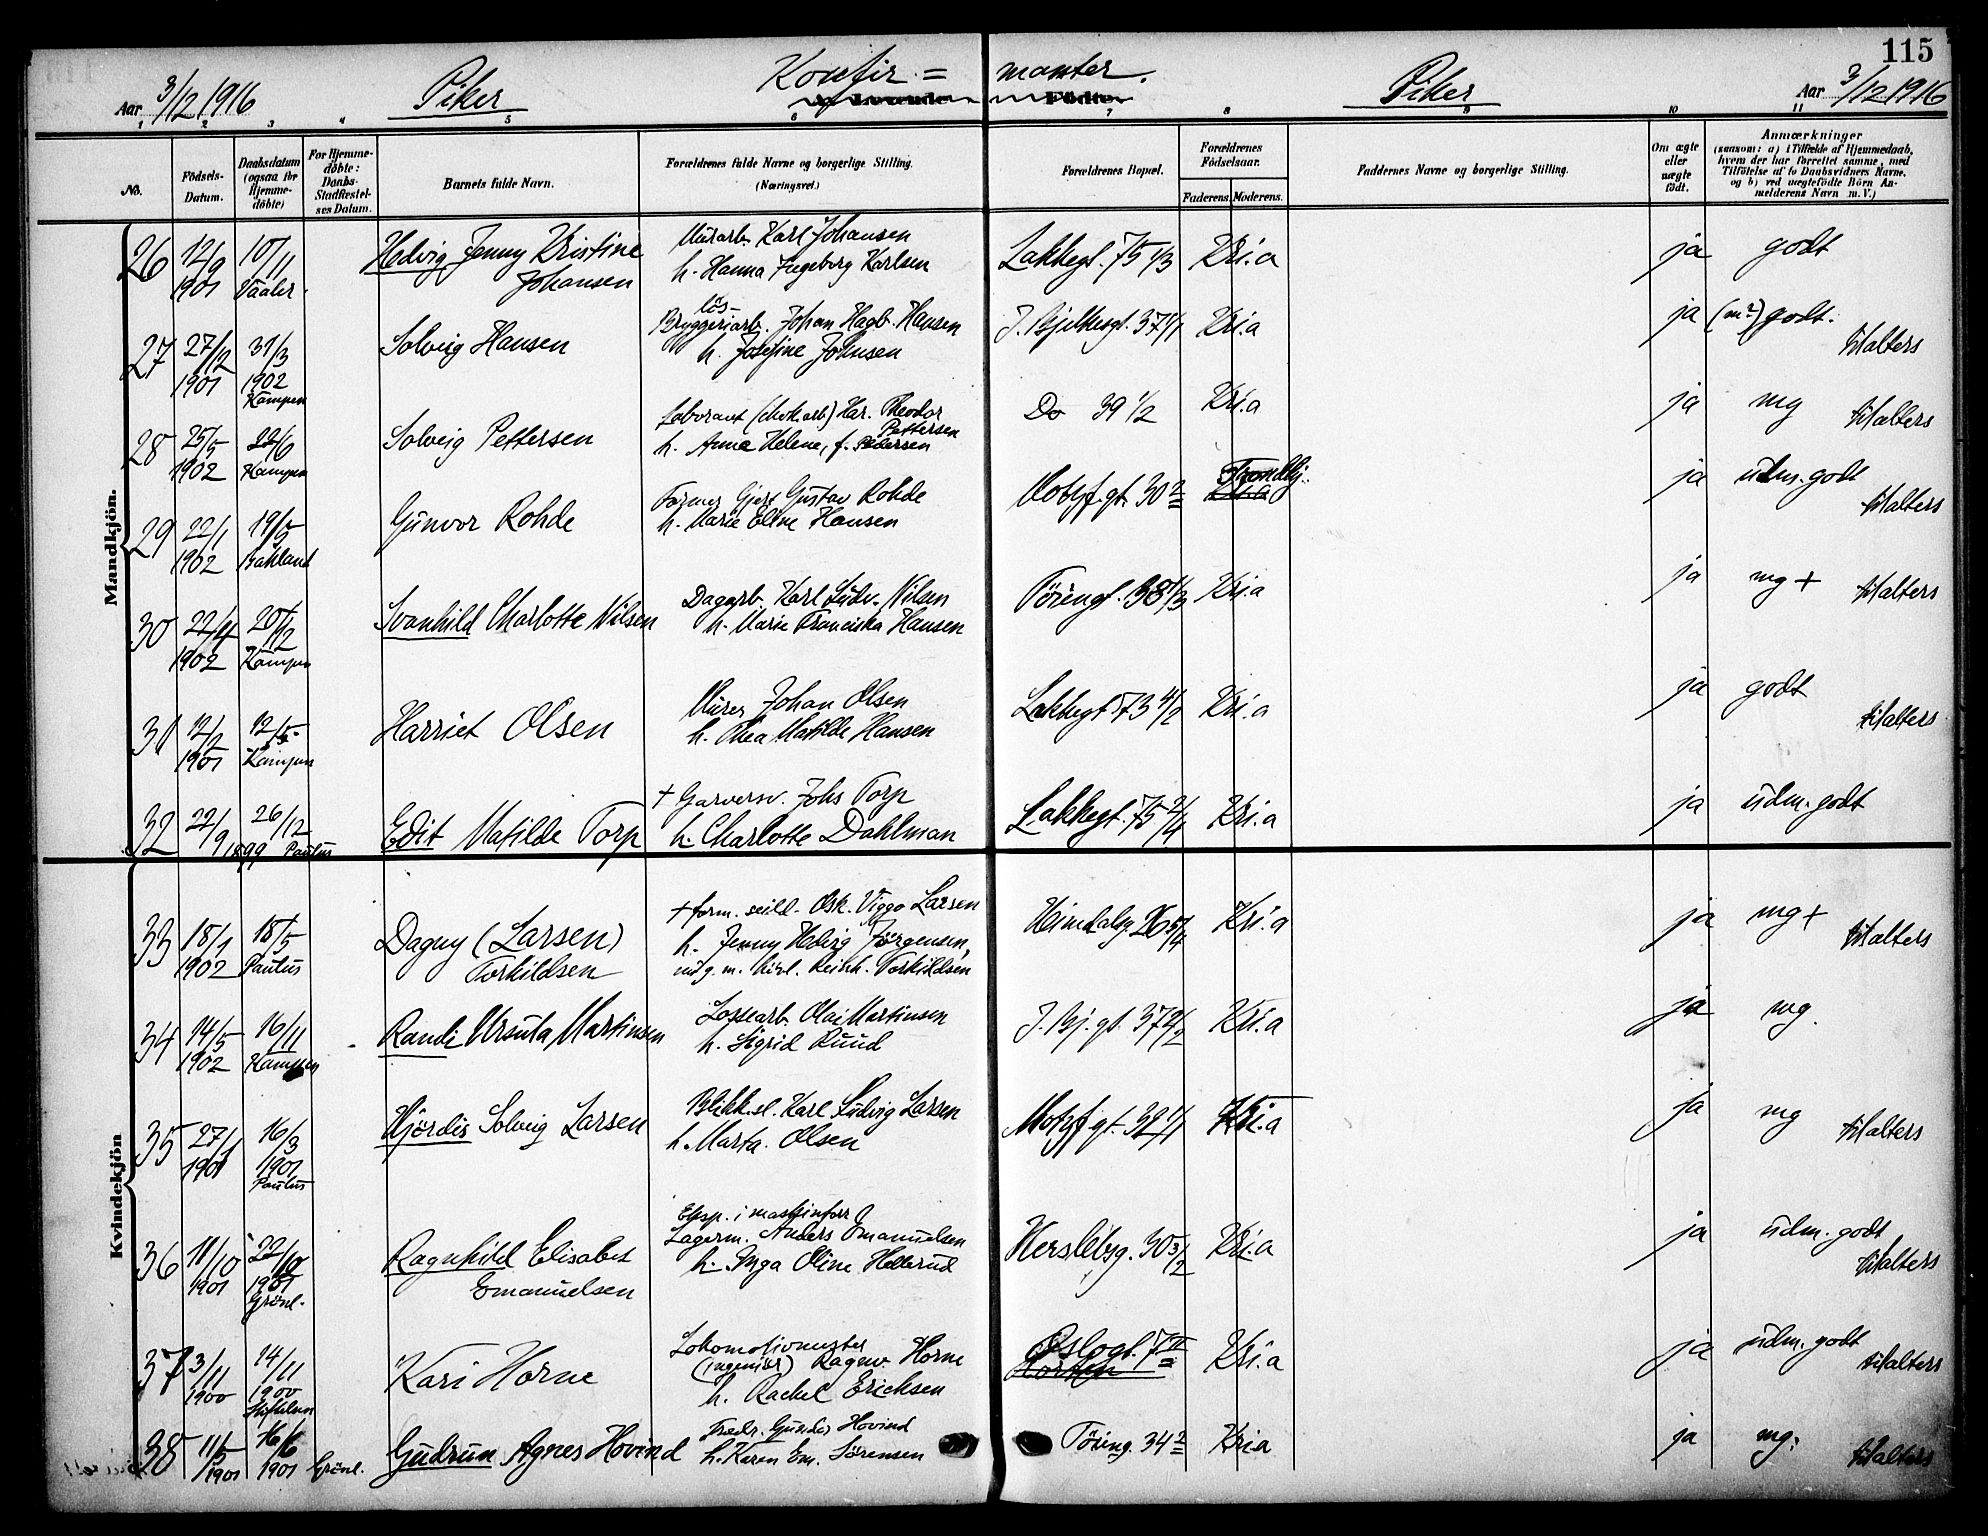 115
Aar 3/12 1916 Piker Konfir = manter. Piker Aar 3/12 1916
Levende Födte
1 2 3 4 5 6 7 8 9 10 11
No.
Födsels-Datum.
Daabsdatum (ogsaa for Hjemme-döbte)
For Hjemme-döbte: Daabs-Stadfæstel-ses Datum.
Barnets fulde Navn.
Forældrenes fulde Navne og borgerlige Stilling.
(Næringsvei.)
Forældrenes Bopæl.
Forældrenes Födselsaar.
Faderens. Moderens.
Faddernes Navne og borgerlige Stilling.
Om ægte eller uægte födt.
Anmærkninger
(saasom: a) i Tilfælde af Hjemmedaab, hvem der har forrettet samme, med Tilföielse af to Daabsvidners Navne, og b) ved uægtefödte Börn An-melderens Navn m. V.)
Mandkjön.
26 12/9 1901 10/11 Vaaler. Hedvig Jenny Kristine Johansen
Murarb. Karl Johansen
h. Hanna Ingeborg Karlsen
Lakkegt. 75 1/3 Kri.a ja godt
27 27/12 1901 31/3 1902 Kampen Solveig Hansen
lös-
Bryggeriarb. Johan Hagb. Hansen
h. Josefine Johnsen
J. Bjelkesgt. 37 1/1 Kri.a ja (m?) godt. til alters
28 25/5 1902 22/6 Kampen Solveig Pettersen
Laborant (chok.arb) Har. Theodor Pettersen
h. Anna Helene, f. Pedersen
Do 39 1/2 Kri.a ja mg til alters
29 22/1 1902 19/5 Bakland Gunvor Rohde
Former Gjert Gustav Rohde
h. Marie Eline Hansen
Motzf.gt. 30 2 Trondhj. Kri.a ja udm. godt til alters
30 22/4 1902 20/12 Kampen Svanhild Charlotte Nilsen
Dagarb. Karl Ludv. Nilsen
h. Marie Franciska Hansen
Töiengt. 38 1/3 Kri.a ja mg + til alters
31 12/2 1901 12/5 Kampen Harriet Olsen
Murer Johan Olsen
h. Thea Matilde Hansen
Lakkegt. 73 4/2 Kri.a ja godt til alters
32 22/9 1899 26/12 Paulus Edit Matilde Torp
+ Garversv. Johs Torp
h. Charlotte Dahlman
Lakkegt. 75 2/4 Kri.a ja udm. godt
Kvindekjön
33 18/1 1902 18/5 Paulus Dagny (Larsen) Torkildsen
+ form. seild. Osk. Viggo Larsen
h. Jenny Hedvig Jörgensen,
nu g. m. Reinh. Torkildsen
Heimdalsg. 26 5/4 Kri.a ja mg + til alters
34 14/5 1902 16/11 Kampen Randi Ursula Martinsen
Lossearb. Olai Martinsen
h. Sigrid Ruud
J. Bj. gt. 37 2/2 Kri.a ja mg.
35 27/1 1901 16/3 1901 Paulus Hjördis Solveig Larsen
Blikk.sl. Karl Ludvig Larsen
h. Marta Olsen
Motzf.gt. 32 1/1 Kri.a ja mg til alters
36 11/10 1901 22/10 1901 Grönl. Ragnhild Elisabet Emanuelsen
Eksp. i maskinforr.
Lagerm. Anders Emanuelsen
h. Inga Oline Hellerud
Herslebsg. 30 3/2 Kri.a ja udm. godt til alters
37 3/11 1900 14/11 1900 Kari Horne
Lokomotivmester
(ingeniör) Ragnv. Horne
h. Rachel Erichsen
Oslogt. 7 II Horten Kri.a ja udm. godt til alters
38 11/5 1901 16/6 1901 Grönl. Gudrun Agnes Hovind
Fredr. Gunder Hovind
h. Karen Em. Sörensen
Töieng. 34 2 Kri.a ja mg. til alters